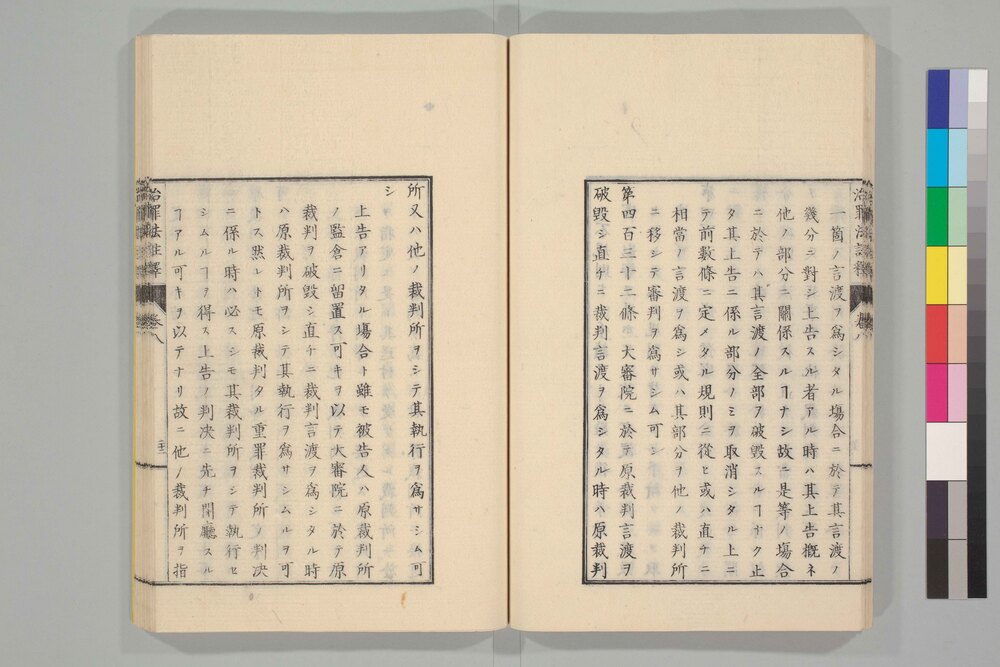 治罪法註釋 卷八
一箇ノ言渡ヲ爲シタル塲合ニ於テ其言渡ノ
幾分ニ對シ上告スル者アル時ハ其上告概ネ
他ノ部分ニ關係スルヿナシ故ニ是等ノ塲合
ニ於テハ其言渡ノ全部ヲ破毀スルヿナク止
タ其上告ニ係ル部分ノミヲ取消シタル上ニ
テ前數條ニ定メタル規則ニ從ヒ或ハ直チニ
相當ノ言渡ヲ爲シ或ハ其部分ヲ他ノ裁判所
ニ移シテ審判ヲ爲サシム可シ
第四百三十二條 大審院ニ於テ原裁判言渡ヲ
破毀シ直チニ裁判言渡ヲ爲シタル時ハ原裁判
所又ハ他ノ裁判所ヲシテ其執行ヲ爲サシム可
シ
上告アリタル塲合ト雖モ被告人ハ原裁判所
ノ監倉ニ留置ス可キヲ以テ大審院ニ於テ原
裁判ヲ破毀シ直チニ裁判言渡ヲ爲シタル時
ハ原裁判所ヲシテ其執行ヲ爲サシムルヲ可
トス然レトモ原裁判タル重罪裁判所ノ判决
ニ係ル時ハ必スシモ其裁判所ヲシテ執行セ
シムルヿヲ得ス上告ノ判决ニ先チ閉廳スル
ヿアル可キヲ以テナリ故ニ他ノ裁判所ヲ指
治罪法註釋 卷八